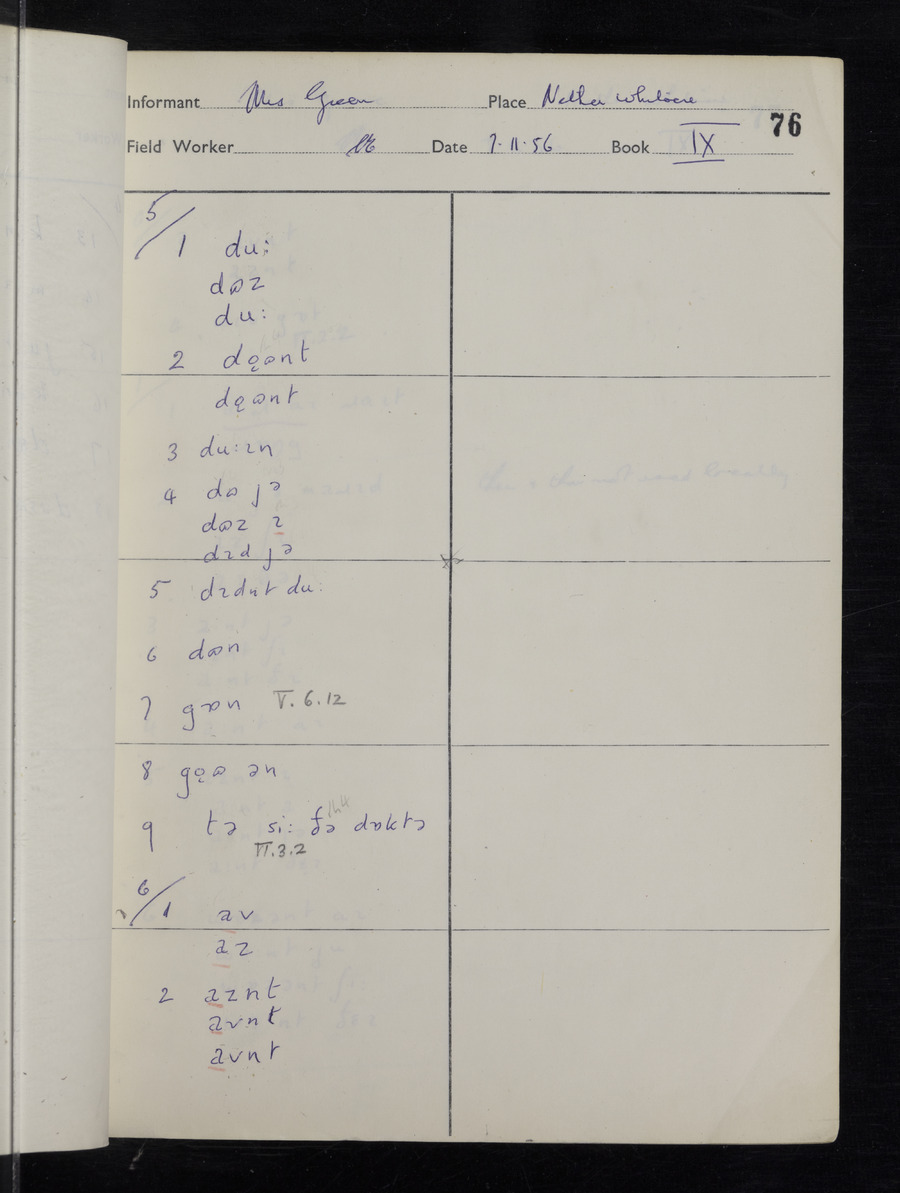 Informant Mrs Green Place Nether Whitacre
76
Field Worker Date 7·11·56 Book IX
5/
1 du:
dɷz
du:
2 dǫɷnt
dǫɷnt
3 du:ɪn
4 dɷ jə
dɷz ɪ
dɪd jə
5 dɪdnt du:
6 dɷn
7 gɒn V.6.12
8 gǫɷ ən
9 tə si: ðə dɒktə
VI.3.2
6/
1 av
az
2 aznt
avnt
avnt